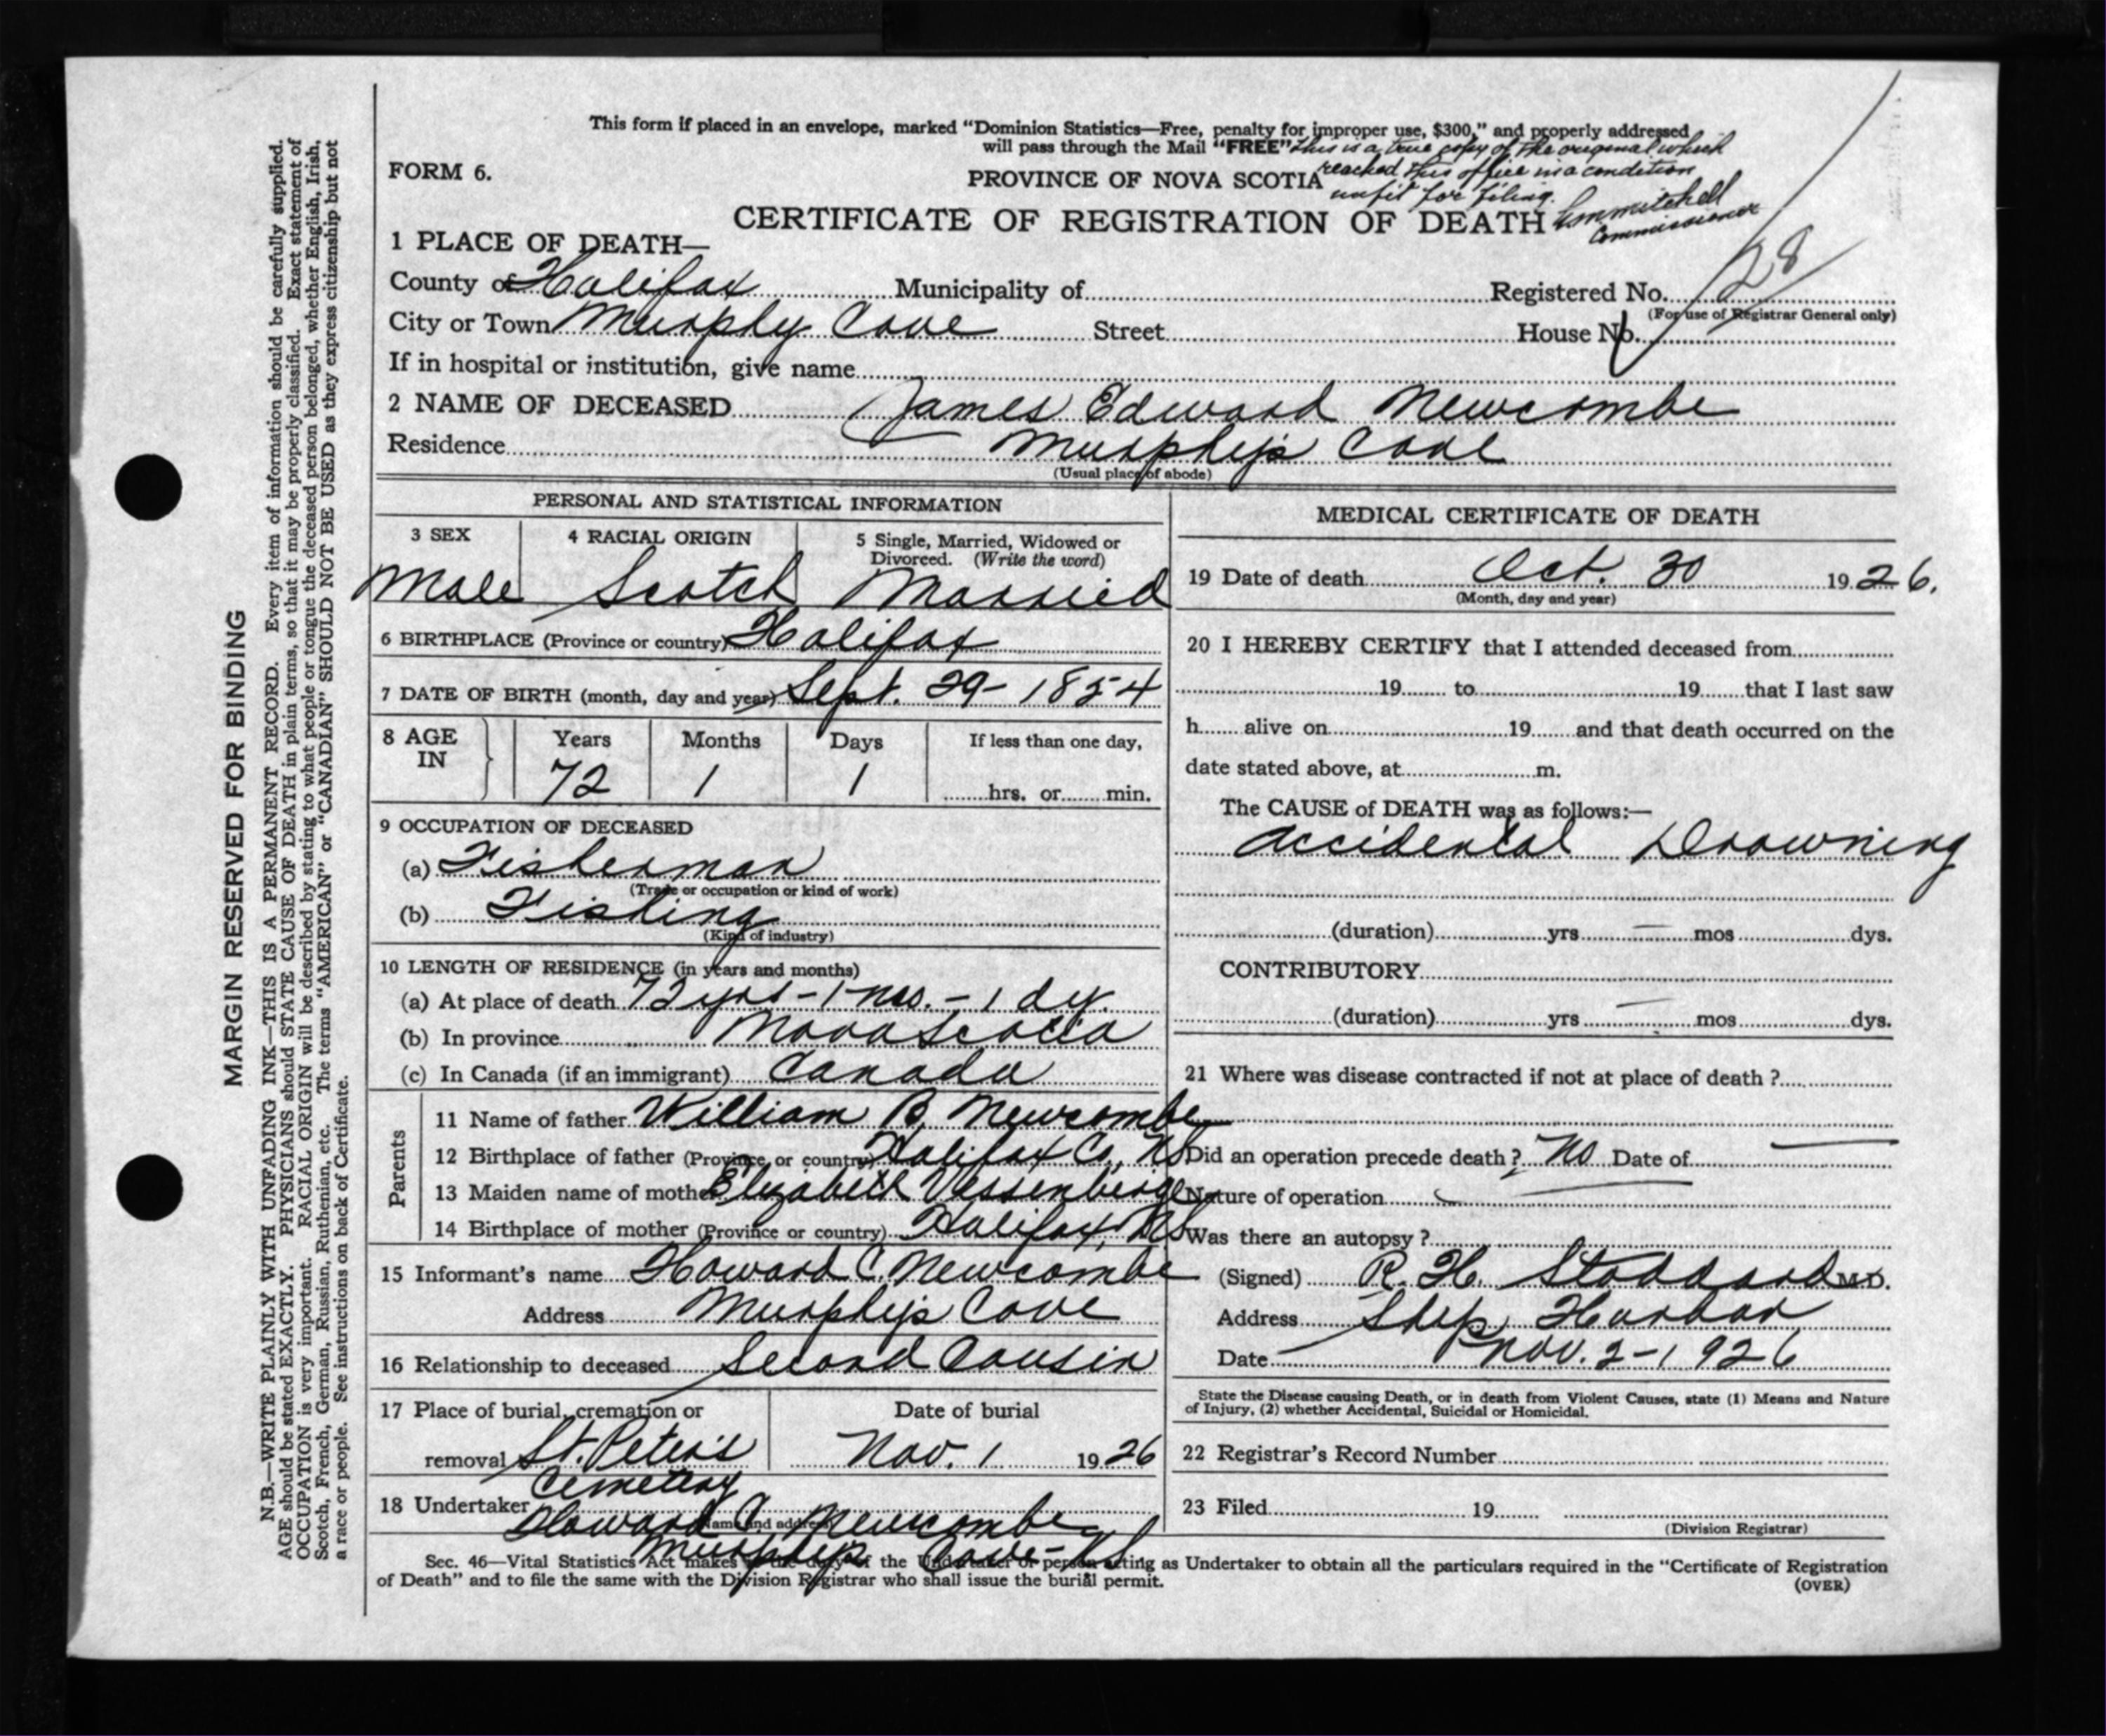 This form if placed in an envelope, marked "Dominion Statistics—Free, penalty for improper use, $300," and properly addressed
will pass through the Mail "FREE" This is a true copy of the original which
FORM 6.
PROVINCE OF NOVA SCOTIA reached this office in a condition
unfit for filing.
CERTIFICATE OF REGISTRATION OF DEATH mitchell
Commissioner
1 PLACE OF DEATH—
County of Halifax Municipality of Registered No. 28
(For use of Registrar General only)
City or Town Murphy Cove Street House No.
If in hospital or institution, give name
2 NAME OF DECEASED James Edward Newcombe
Residence Murphy's Cove
(Usual place of abode)
PERSONAL AND STATISTICAL INFORMATION
3 SEX 4 RACIAL ORIGIN 5 Single, Married, Widowed or
Divorced. (Write the word)
Male Scotch Married
6 BIRTHPLACE (Province or country) Halifax
7 DATE OF BIRTH (month, day and year) Sept. 29-1854
8 AGE IN Years Months Days If less than one day,
72 1 1 hrs. or min.
9 OCCUPATION OF DECEASED
(a) Fisherman
(Trade or occupation or kind of work)
(b) Fishing
(Kind of industry)
10 LENGTH OF RESIDENCE (in years and months)
(a) At place of death 72 yrs-1-mos.-1 dy.
(b) In province Nova Scotia
(c) In Canada (if an immigrant) Canada
Parents
11 Name of father William B. Newcombe
12 Birthplace of father (Province or country) Halifax Co., NS
13 Maiden name of mother Elizabeth
14 Birthplace of mother (Province or country) Halifax, NS
15 Informant's name Howard C. Newcombe
Address Murphy's Cove
16 Relationship to deceased Second Cousin
17 Place of burial, cremation or Date of burial
removal St. Peter's Nov. 1 1926
Cemetery
18 Undertaker Howard C. Newcombe
(Name and address)
Murphy's Cove-NS
MEDICAL CERTIFICATE OF DEATH
19 Date of death Oct. 30 1926.
(Month, day and year)
20 I HEREBY CERTIFY that I attended deceased from
19 to 19 that I last saw
h alive on 19 and that death occurred on the
date stated above, at m.
The CAUSE of DEATH was as follows:—
Accidental Drowning
(duration) yrs — mos dys.
CONTRIBUTORY
(duration) yrs — mos dys.
21 Where was disease contracted if not at place of death ?
Did an operation precede death ? No Date of —
Nature of operation
Was there an autopsy ?
(Signed) R. H. Stoddard M.D.
Address Ship Harbor
Date Nov. 2-1926
State the Disease causing Death, or in death from Violent Causes, state (1) Means and Nature
of Injury, (2) whether Accidental, Suicidal or Homicidal.
22 Registrar's Record Number
23 Filed 19
(Division Registrar)
Sec. 46—Vital Statistics Act makes it the duty of the Undertaker or person acting as Undertaker to obtain all the particulars required in the "Certificate of Registration
of Death" and to file the same with the Division Registrar who shall issue the burial permit.
(OVER)
MARGIN RESERVED FOR BINDING
N.B.—WRITE PLAINLY WITH UNFADING INK—THIS IS A PERMANENT RECORD. Every item of information should be carefully supplied.
AGE should be stated EXACTLY. PHYSICIANS should STATE CAUSE OF DEATH in plain terms, so that it may be properly classified. Exact statement of
OCCUPATION is very important. RACIAL ORIGIN will be described by stating to what people or tongue the deceased person belonged, whether English, Irish,
Scotch, French, German, Russian, Ruthenian, etc. The terms "AMERICAN" or "CANADIAN" SHOULD NOT BE USED as they express citizenship but not
a race or people. See instructions on back of Certificate.